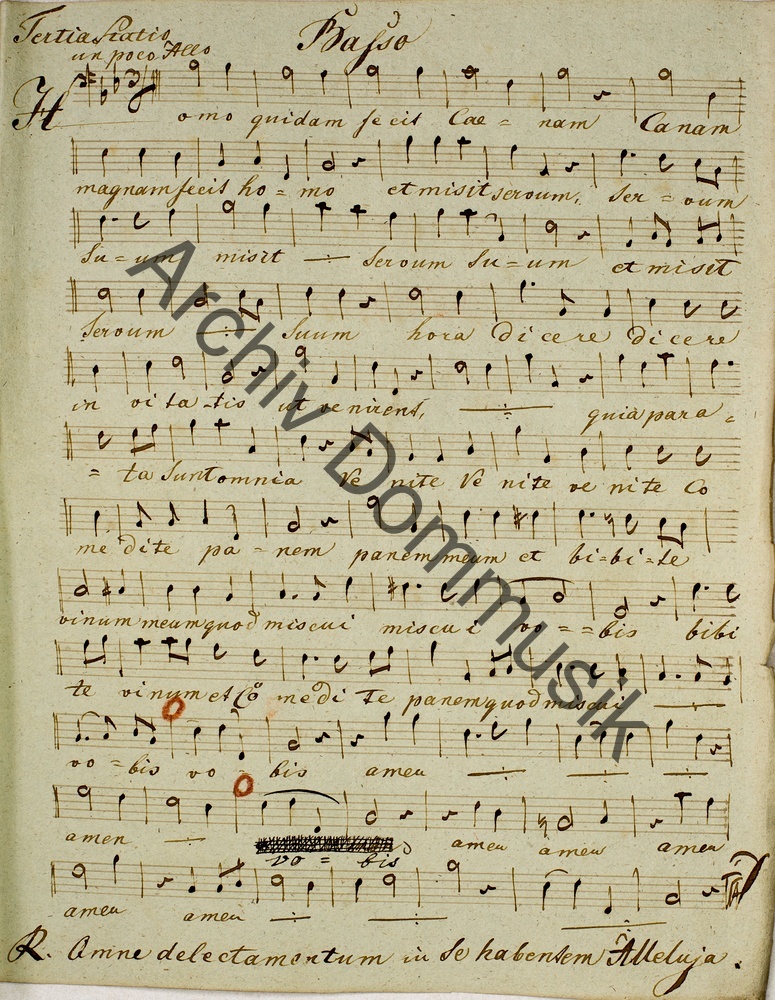 Tertia Statio
un poco Allo
Basso
Homo quidam fecit Cae = nam Canam
magnam fecit ho = mo et misit servum, Ser = vum
Su = um misit servum Su = um et misit
Servum suum hora dicere dicere
in vitatis ut venirent, quia para =
= ta Sunt omnia Ve nite Ve nite ve nite Co
me dite pa = nem panem meum et bi = bi = te
vinum meum quod miscui miscui vo = = bis bibi
te vinum et Co medi te panem quod miscui
vo = bis vo = bis amen
amen vo = bis amen amen amen
amen amen
R. Omne delectamentum in se habentem Alleluja.
Archiv Dommusik